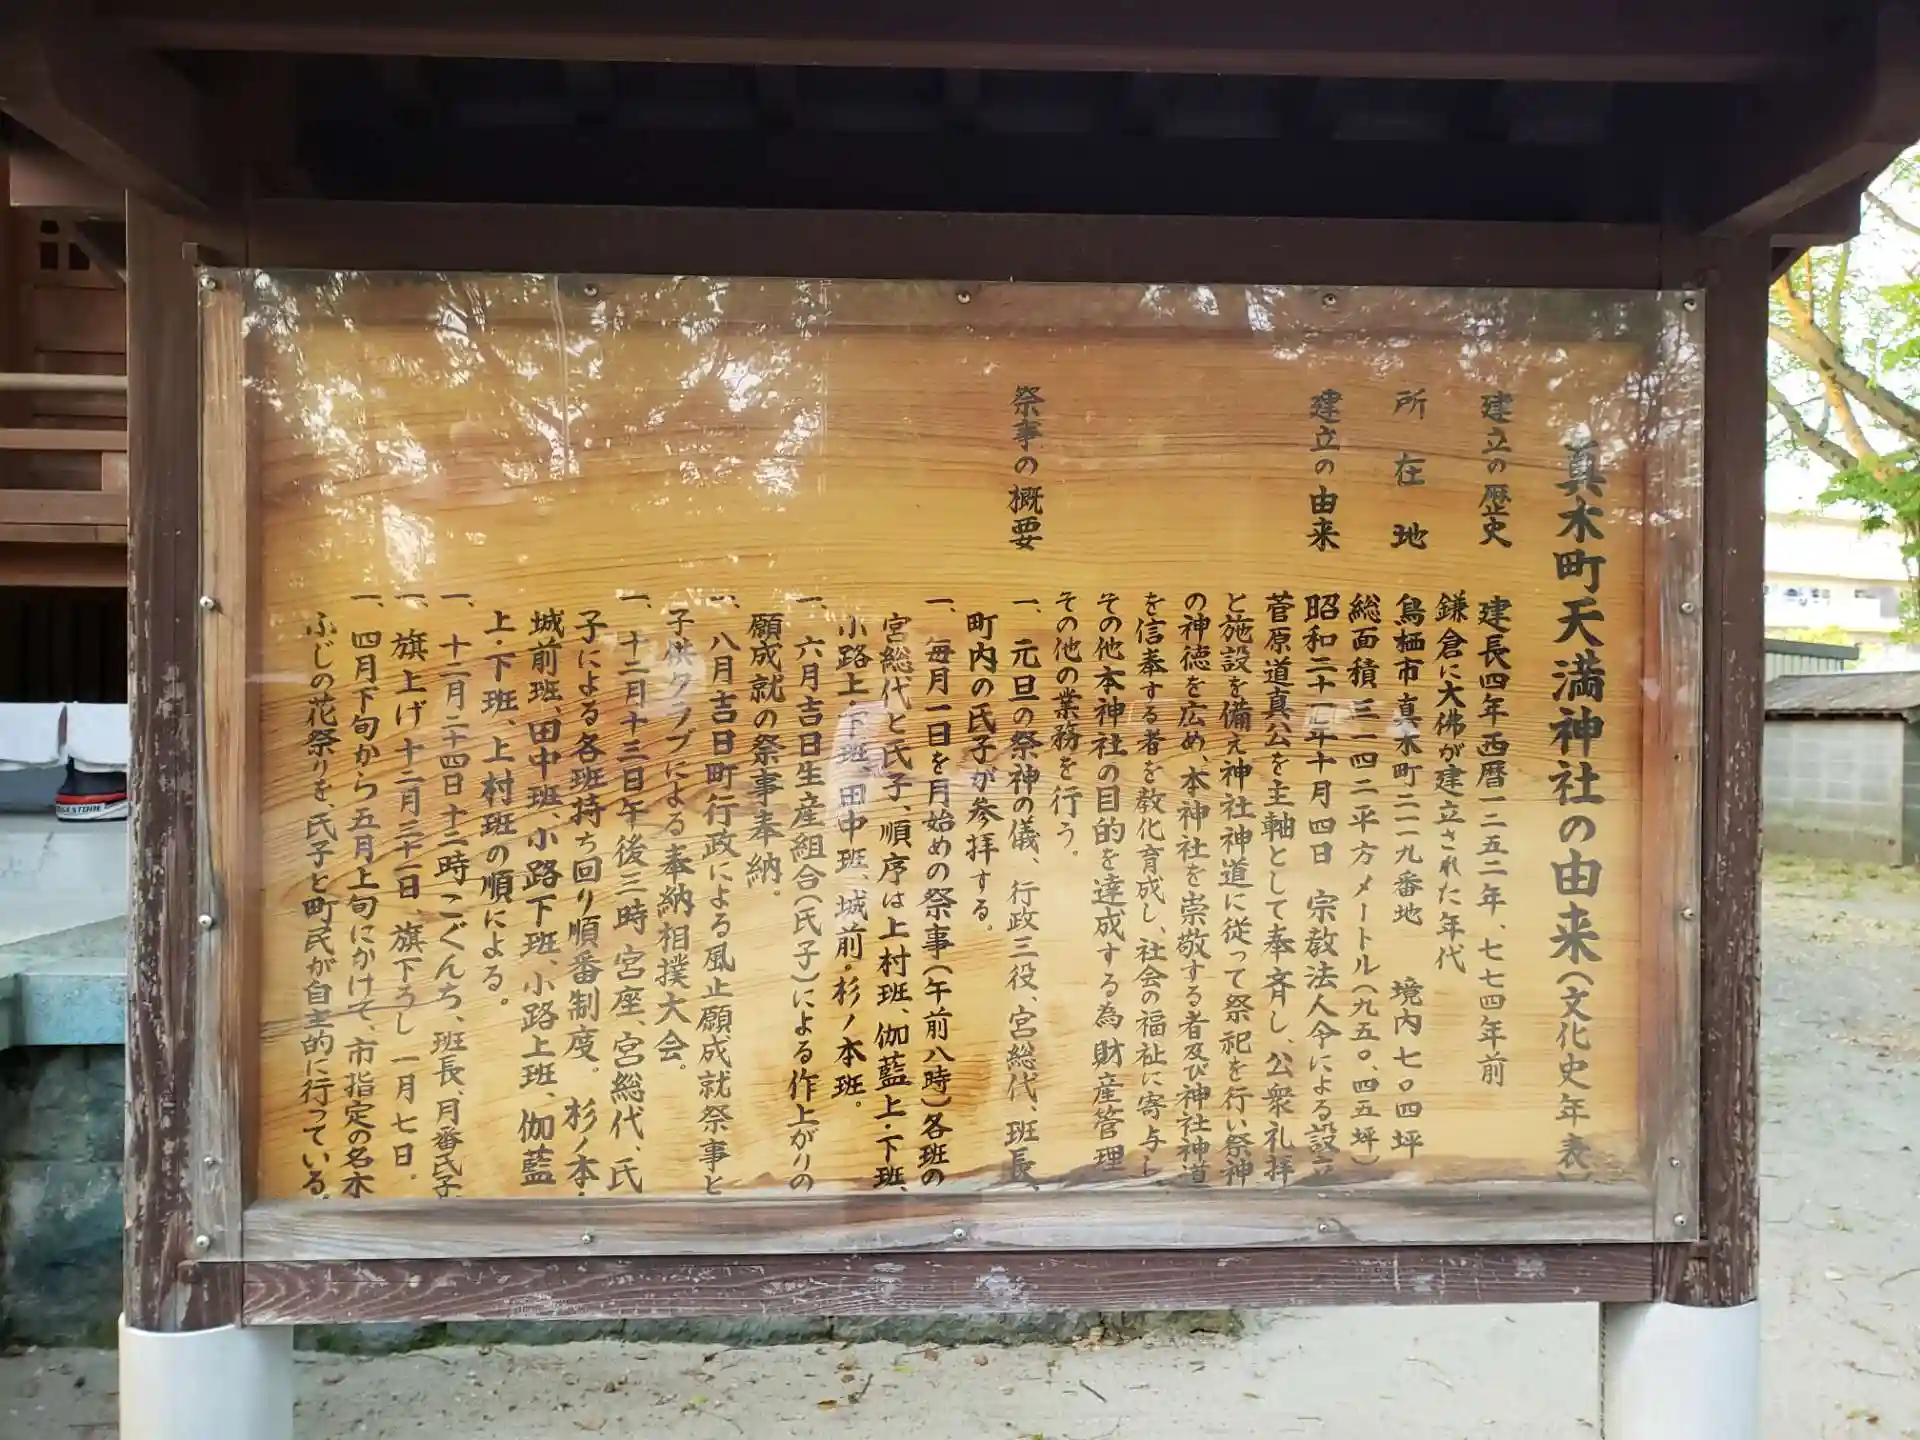 真木町天満神社の由来(文化史年表)
建立の歴史 建長四年西暦一二五二年、七七四年前
鎌倉に大佛が建立された年代
所在地 鳥栖市真木町二一一九番地 境内七〇四坪
総面積三一四二平方メートル(九五〇、四五坪)
建立の由来 昭和二十一年十月四日 宗教法人令による設立
菅原道真公を主軸として奉斉し、公衆礼拝
と施設を備え神社神道に従って祭祀を行い祭神
の神徳を広め、本神社を崇敬する者及び神社神道
を信奉する者を教化育成し、社会の福祉に寄与し
その他本神社の目的を達成する為財産管理
その他の業務を行う。
祭事の概要 一、元旦の祭神の儀、行政三役、宮総代、班長、
町内の氏子が参拝する。
一、毎月一日を月始めの祭事(午前八時)各班の
宮総代と氏子、順序は上村班、伽藍上・下班、
小路上・下班、田中班、城前・杉ノ本班。
一、六月吉日生産組合(氏子)による作上がりの
願成就の祭事奉納。
一、八月吉日町行政による風止願成就祭事と
子供クラブによる奉納相撲大会。
一、十二月十三日午後三時宮座、宮総代、氏
子による各班持ち回り順番制度。杉ノ本・
城前班、田中班、小路下班、小路上班、伽藍
上・下班、上村班の順による。
一、十二月二十四日十二時ごくんち、班長、月番氏子
一、旗上げ十二月三十一日、旗下ろし一月七日。
一、四月下旬から五月上旬にかけて、市指定の名木
ふじの花祭りを、氏子と町民が自主的に行っている。